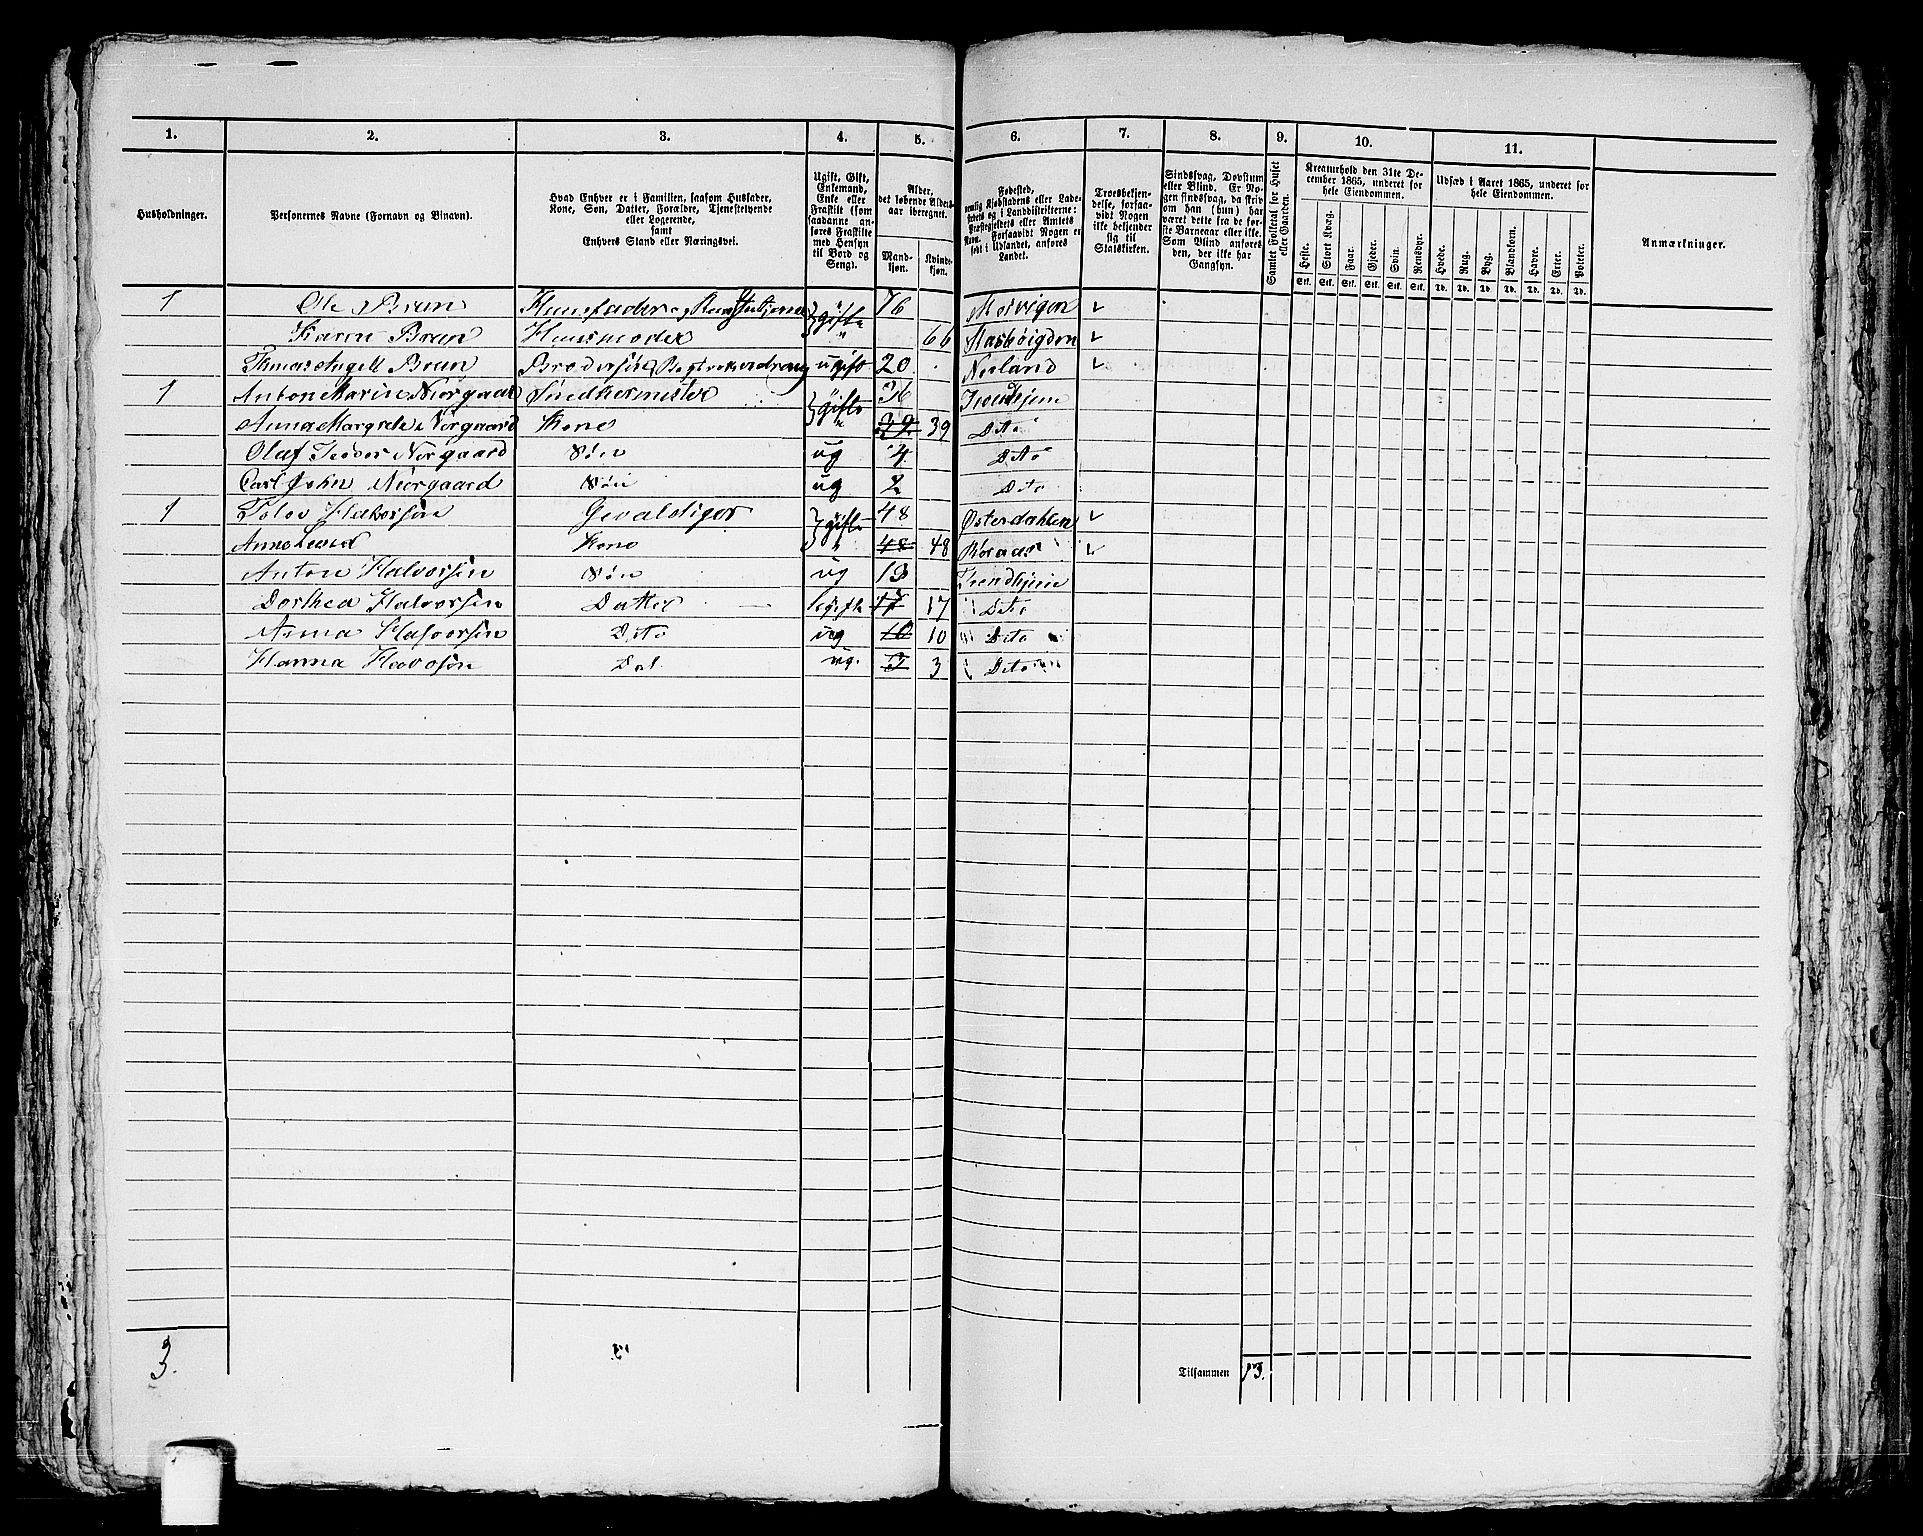 1. 2. 3. 4. 5. 6. 7. 8. 9. 10. 11.
Husholdninger.
Personernes Navne (Fornavn og Binavn).
Hvad Enhver er i Familien, saasom Husfader,
Kone, Søn, Datter, Forældre, Tjenestetyende
eller Logerende,
samt
Enhvers Stand eller Næringsvei.
Ugift, Gift,
Enkemand,
Enke eller
Fraskilt (som
saadanne an-
føres Fraskilte
med Hensyn
til Bord og
Seng).
Alder,
det løbende Alders-
aar iberegnet.
Mand-
kjøn.
Kvinde-
kjøn.
Fødested,
nemlig Kjøbstadens eller Lade-
stedets og i Landdistrikterne:
Præstegjeldets eller Amtets
Navn. Forsaavidt Nogen er
født i Udlandet, anføres
Landet.
Troesbekjen-
delse, forsaa-
vidt Nogen
ikke bekjender
sig til
Statskirken.
Sindssvag, Døvstum
eller Blind. Er No-
gen sindssvag, da skriv
om han (hun) har
været dette fra de for-
ste Barneaar eller ikke.
Som Blind anføres
den, der ikke har
Gangsyn.
Samlet Folketal for Huset
eller Gaarden.
Kreaturhold den 31te De-
cember 1865, underet for
hele Eiendommen.
Heste. Stort Kvæg. Faar. Gjeder. Svin. Rensdyr.
Stk. Stk. Stk. Stk. Stk. Stk.
Udsæd i Aaret 1865, underet for
hele Eiendommen.
Hvede. Rug. Byg. Blandkorn. Havre. Erter. Poteter.
Td. Td. Td. Td. Td. Td. Td.
Anmærkninger.
1 Ole Brun gifte 76
Karen Brun Huusmoder " 66
Thomas Angell Brun ugift 20
1 Anton Marin Nørgaard Snedkermester gifte 36 Trondhjem
Anna Margrete Nørgaard Kone " 39 39 Dito
Olaf Teodor Nørgaard Søn ug 4 Dito
Carl John Nørgaard Søn ug 2 Dito
1 Halvorsen Gevaldiger gifte 48 Østerdahlen
Kone " 48 48 Røraas
Anton Halvorsen Søn ug 13 Trondhjem
Dorthea Halvorsen Datter ugift 17 17 Dito
Anna Halvorsen Dito ug 10 10 Dito
Hanna Dat ug. 3 3 Dito
3.
Tilsammen 13.